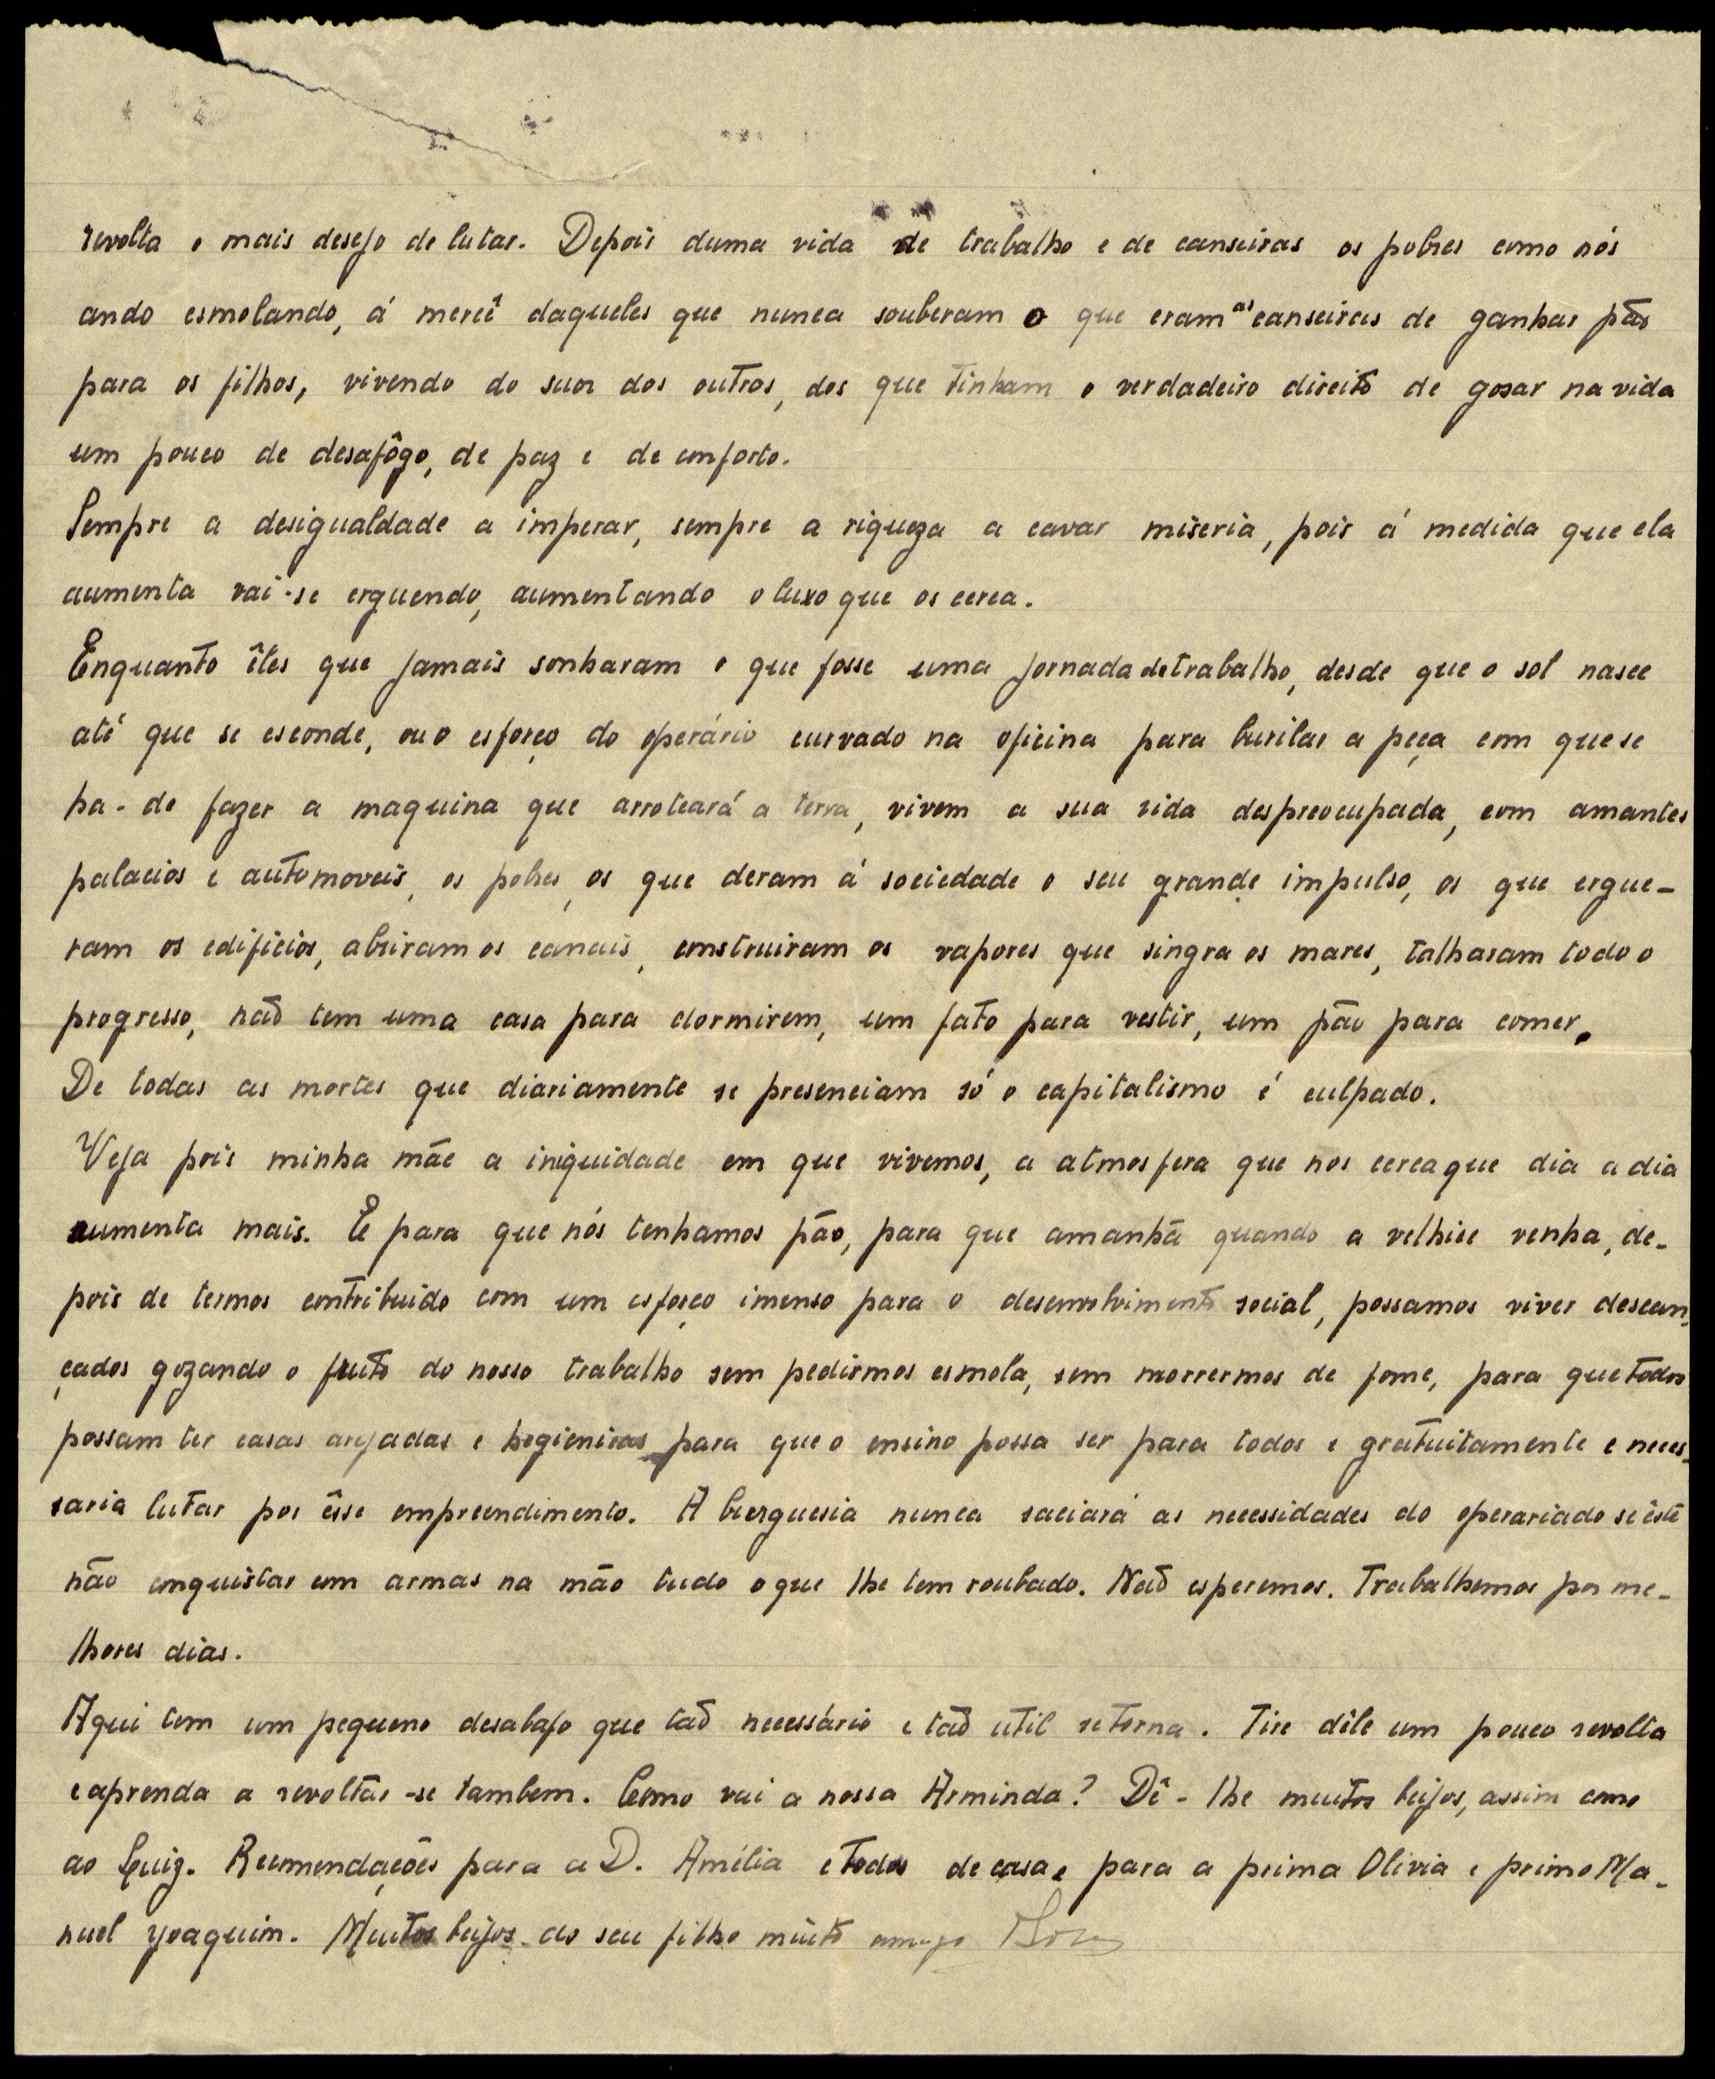 revolta e mais desejo de lutar. Depois duma vida de trabalho e de canseiras os pobres como nós
ando esmolando, á mercê daqueles que nunca souberam o que eram as canseiras de ganhar pão
para os filhos, vivendo do suor dos outros, dos que tinham o verdadeiro direito de gosar na vida
um pouco de desafôgo, de paz e de conforto.
Sempre a desigualdade a imperar, sempre a riqueza a cavar miseria, pois á medida que ela
aumenta vai-se erguendo, aumentando o luxo que os cerca.
Enquanto êles que jamais sonharam o que fosse uma jornada de trabalho, desde que o sol nasce
até que se esconde, ou o esforço do operário curvado na oficina para burilar a peça com que se
ha-de fazer a maquina que arroteará a terra, vivem a sua vida despreocupada, com amantes
palacios e automoveis, os pobres, os que deram á sociedade o seu grande impulso, os que ergue-
ram os edificios, abriram os canais, construiram os vapores que singra os mares, talharam todo o
progresso, não tem uma casa para dormirem, um fato para vestir, um pão para comer.
De todas as mortes que diariamente se presenciam só o capitalismo é culpado.
Veja pois minha mãe a iniquidade em que vivemos, a atmosfera que nos cerca que dia a dia
aumenta mais. E para que nós tenhamos pão, para que amanhã quando a velhice venha, de-
pois de termos contribuido com um esforço imenso para o desenvolvimento social, possamos viver descan-
çados gozando o fruto do nosso trabalho sem pedirmos esmola, sem morrermos de fome, para que todos
possam ter casas arejadas e hegienicas para que o ensino possa ser para todos e gratuitamente e neces-
saria lutar por êsse empreendimento. A burguesia nunca saciará as necessidades do operariado se êste
não conquistar com armas na mão tudo o que lhe tem roubado. Não esperemos. Trabalhemos por me-
lhores dias.
Aqui tem um pequeno desabafo que tão necessário e tão util se torna. Tire dêle um pouco revolta
e aprenda a revoltar-se tambem. Como vai a nossa Arminda? Dê-lhe muitos beijos, assim como
ao Luiz. Recomendações para a D. Amélia e todos de casa e para a prima Olivia e primo Ma-
nuel Joaquim. Muitos beijos do seu filho muito amigo